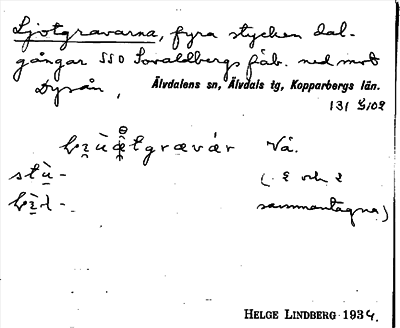 Ljotgravarna, fyra stycken dal-
gångar SSO Lovaldbergs fäb. ned mot
Dysån,
Älvdalens sn, Älvdals tg, Kopparbergs län.
131
Vå.
stù- (2 och 2
sammantagna)
HELGE LINDBERG 1934.